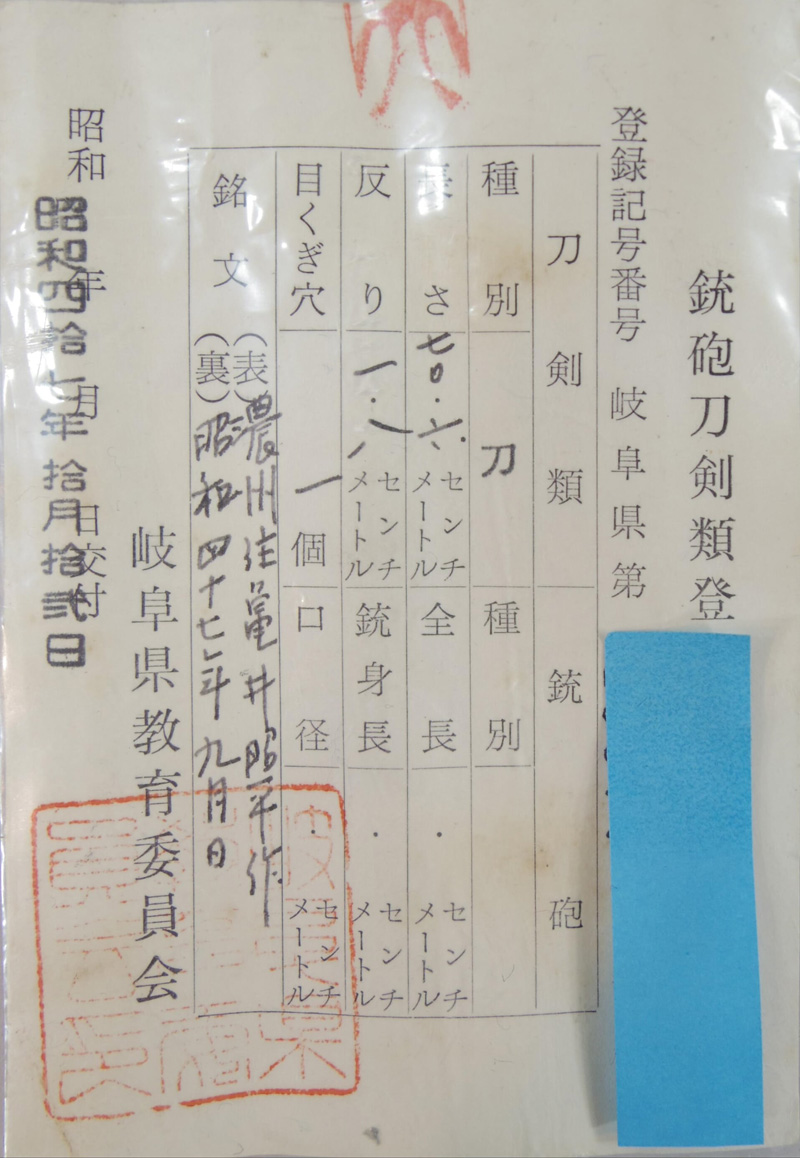 銃砲刀剣類登
登録記号番号 岐阜県第
刀剣類 銃砲
種別 刀 種別
長さ 七〇・六センチメートル 全長 ・ センチメートル
反り 一・八センチメートル 銃身長 ・ センチメートル
目くぎ穴 一個 口径 ・ センチメートル
銘文 (表)濃州住亀井昭平作
(裏)昭和四十七年九月日
岐阜県教育委員会
昭和 年 月 日交付
昭和四拾七年拾月拾弐日